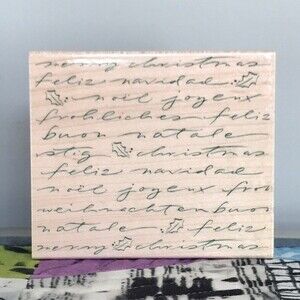 merry christmas
feliz navidad
noël joyeux
fröhliches feliz
buon natale
stig christmas
feliz navidad
noël joyeux froh
weihnachten buon
natale feliz
merry christmas